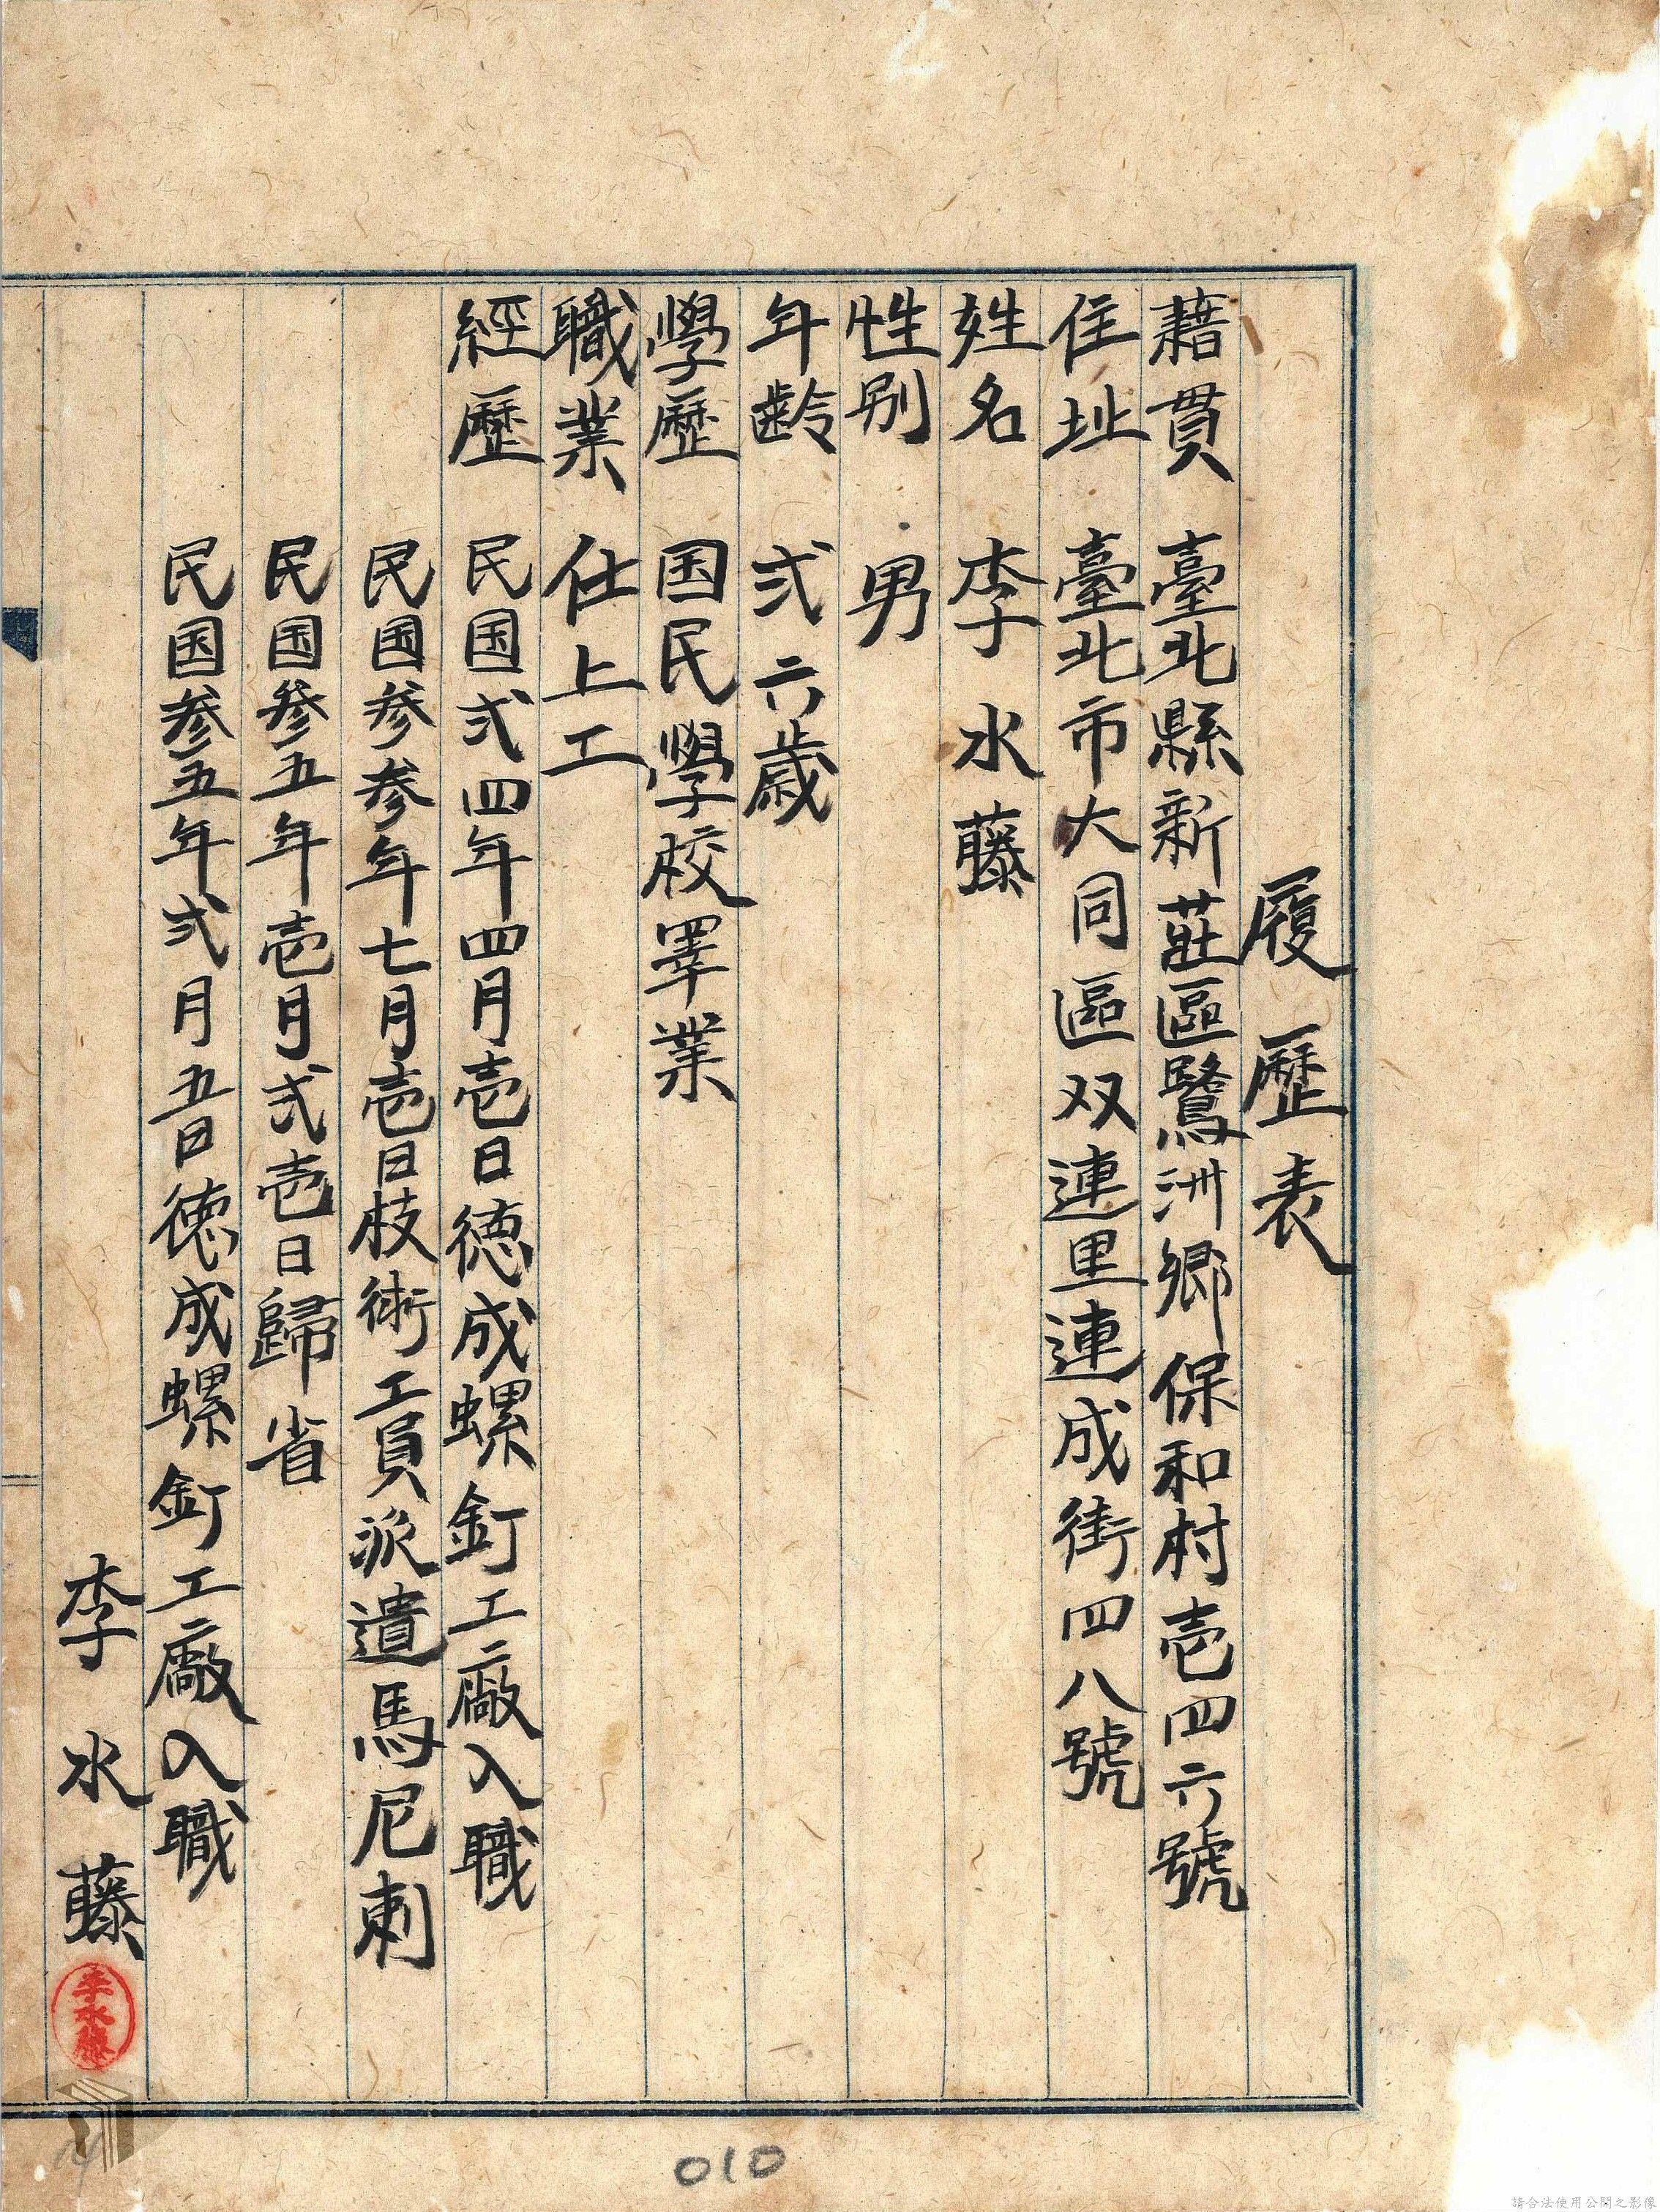 履歷表
藉貫 臺北縣新莊區鷺洲鄉保和村壱四六號
住址 臺北市大同區双連里連成街四八號
姓名 李水藤
性別 男
年齢 弍六歳
學歷 国民學校畢業
職業 仕上工
經歷 民国弍四年四月壱日徳成螺釘工廠入職
民国参参年七月壱日枝術工員派遣馬尼剌
民国参五年壱月弍壱日歸省
民国参五年弍月五日徳成螺釘工廠入職
李水藤
李水藤
010
請合法使用公開之影像